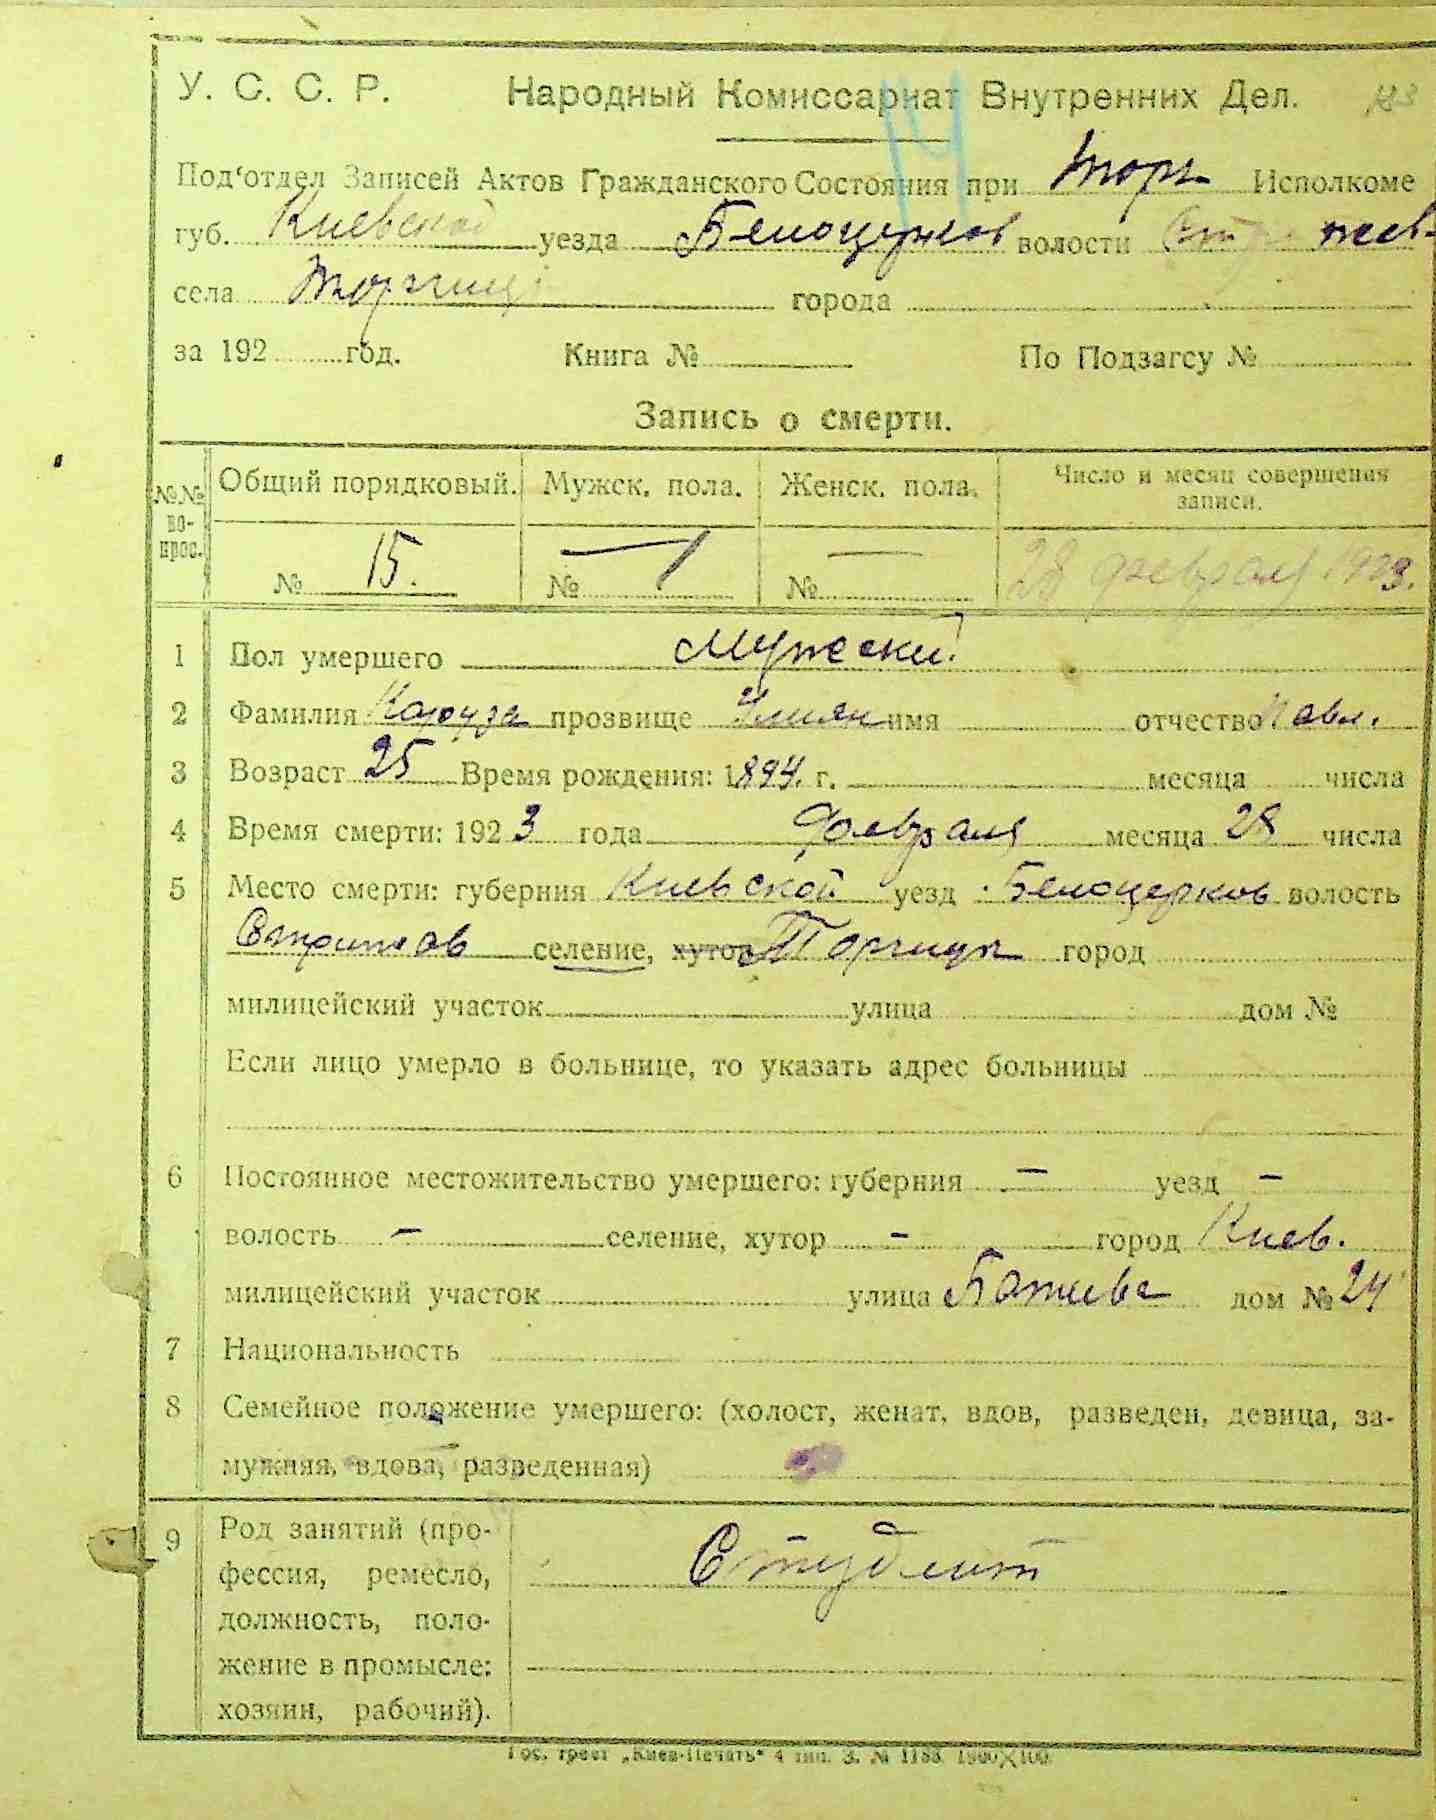 У. С. С. Р. Народный Комиссариат Внутренних Дел.
14
Под‘отдел Записей Актов Гражданского Состояния при Исполкоме
губ. Киевской уезда Белоцерков волости
села города
за 192 год. Книга № По Подзагсу №
Запись о смерти.
№№ во- прос. Общий порядковый. Мужск. пола. Женск. пола. Число и месяц совершения записи.
№ 15. № — 1 № — 28 февраля 1923.
1 Пол умершего Мужески.
2 Фамилия прозвище имя отчество Павл.
3 Возраст 25 Время рождения: 1894. г. месяца числа
4 Время смерти: 1923 года февраля месяца 28 числа
5 Место смерти: губерния Киевской уезд Белоцерков волость
Стрижов селение, хутор Торчица город
милицейский участок улица дом №
Если лицо умерло в больнице, то указать адрес больницы
6 Постоянное местожительство умершего: губерния — уезд —
волость — селение, хутор — город Киев.
милицейский участок улица дом № 24
7 Национальность
8 Семейное положение умершего: (холост, женат, вдов, разведен, девица, за-
мужняя, вдова, разведенная)
9 Род занятий (про-
фессия, ремесло, Студент
должность, поло-
жение в промысле:
хозяин, рабочий).
Гос. трест „Киев-Печать“ 4 тип. З. № 1188. 1900×100.